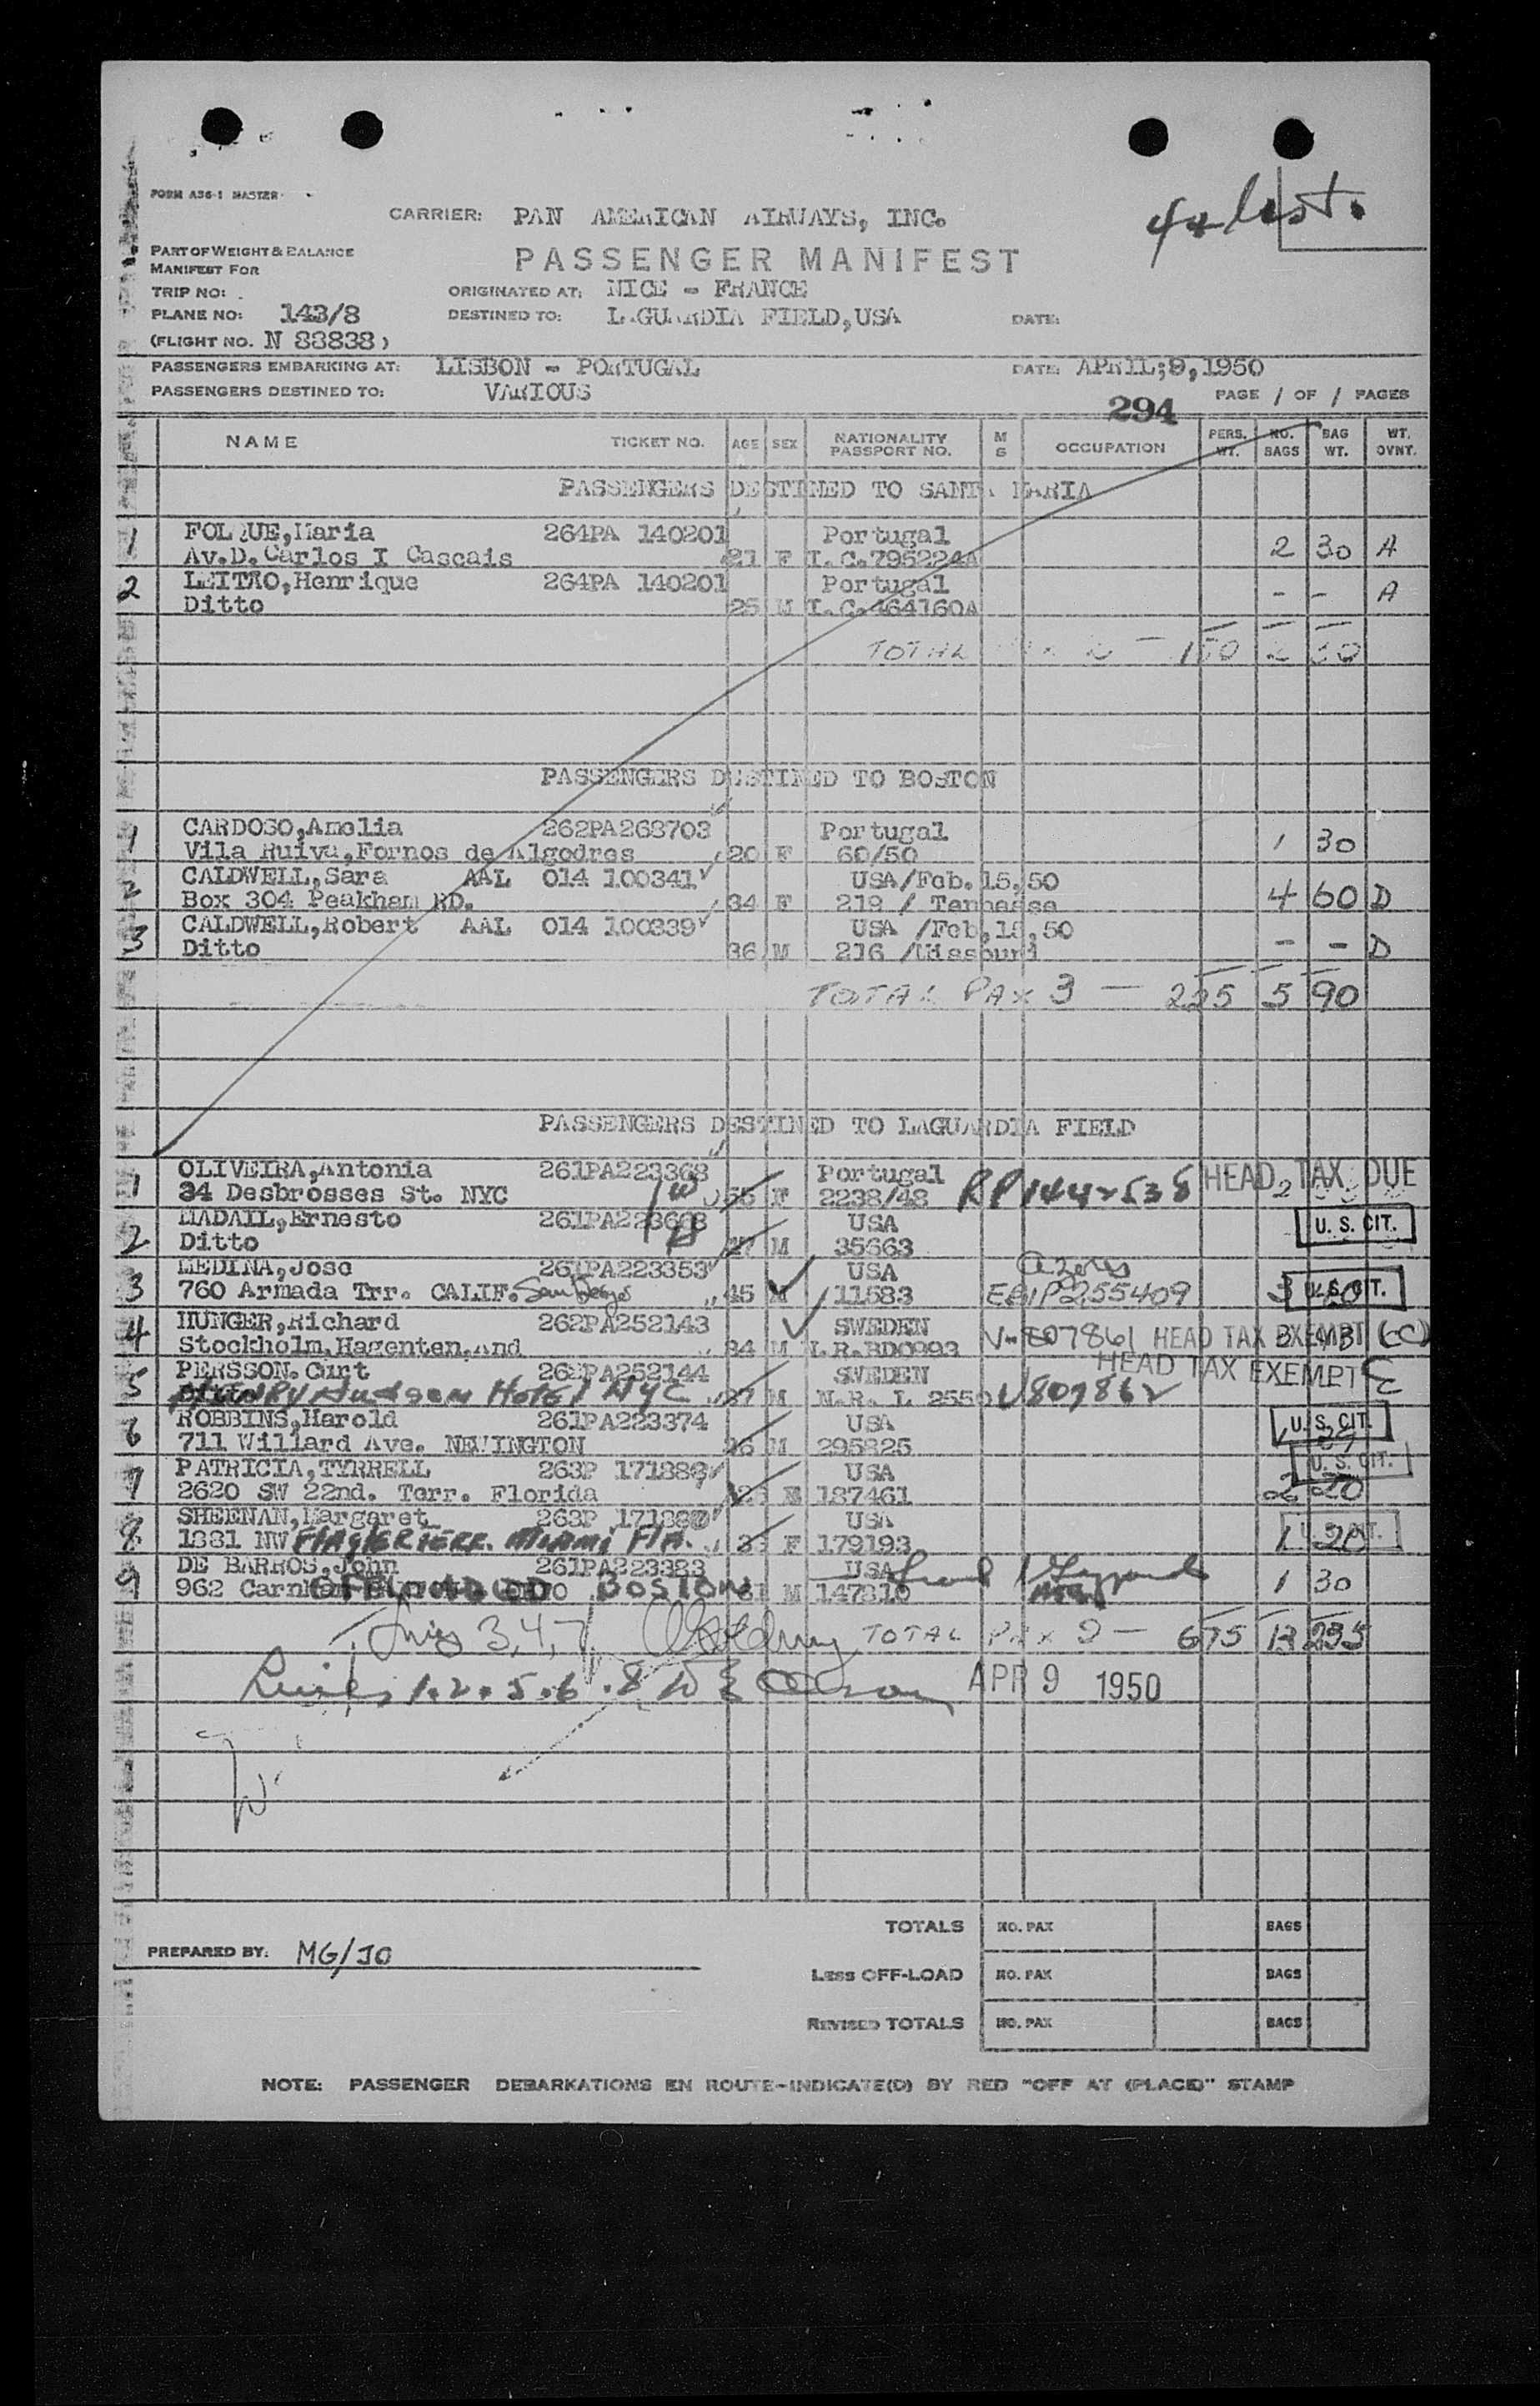 4a List.
FORM A36-1 MASTER
CARRIER: PAN AMERICAN AIRWAYS, INC.
PART OF WEIGHT & BALANCE
MANIFEST FOR
PASSENGER MANIFEST
TRIP NO: ORIGINATED AT: NICE - FRANCE
PLANE NO: 143/8 DESTINED TO: LAGUARDIA FIELD, USA DATE:
(FLIGHT NO. N 88838)
PASSENGERS EMBARKING AT: LISBON - PORTUGAL DATE: APRIL;9,1950
PASSENGERS DESTINED TO: VARIOUS 294 PAGE / OF / PAGES
NAME TICKET NO. AGE SEX NATIONALITY PASSPORT NO. M S OCCUPATION PERS. WT. NO. BAGS BAG WT. WT. OVNT.
PASSENGERS DESTINED TO SANTA MARIA
1 FOLQUE,Maria 264PA 140201 Portugal
Av.D.Carlos I Cascais 21 F I.C.795224A 2 30 A
2 LEITAO,Henrique 264PA 140201 Portugal
Ditto 25 M I.C.464160A - - A
TOTAL PAX 2 - 150 2 30
PASSENGERS DESTINED TO BOSTON
1 CARDOSO,Amelia 262PA268703 Portugal
Vila Ruiva,Fornos de Algodres 20 F 60/50 1 30
2 CALDWELL,Sara AAL 014 100341 USA/Feb.15,50
Box 304 Peakham RD. 34 F 219 / Tennesse 4 60 D
3 CALDWELL,Robert AAL 014 100339 USA /Feb,15,50
Ditto 36 M 216 /Missouri - - D
TOTAL PAX 3 - 225 5 90
PASSENGERS DESTINED TO LAGUARDIA FIELD
1 OLIVEIRA,Antonia 261PA223368 Portugal HEAD TAX DUE
34 Desbrosses St. NYC 55 F 2238/48 RP1442538 2
2 MADAIL,Ernesto USA U. S. CIT.
Ditto 27 M 35663
3 MEDINA,Jose 261PA223353 USA Azores
760 Armada Trr. CALIF. San Diego 45 M 11583 3 U. S. CIT.
4 HUNGER,Richard 262PA252143 SWEDEN
Stockholm,Hagenten,And 34 M HEAD TAX EXEMPT (CC)
5 PERSSON.Curt 262PA252144 SWEDEN HEAD TAX EXEMPT
Henry Hudson Hotel NYC 37 M N.R. L 2550 V807862
6 ROBBINS,Harold 261PA223374 USA U. S. CIT.
711 Willard Ave. NEWINGTON 26 M 295825
7 PATRICIA,TYRRELL USA U. S. CIT.
2620 SW 22nd. Terr. Florida 187461 2 20
8 SHEENAN,Margaret USA
1881 NW Flagler Terr. Miami Fla. F 179193 1 20 U. S. CIT.
9 DE BARROS,John 261PA223383 USA
962 OFFLOADED BOSTON M 147810 1 30
Lines 3,4,7, TOTAL PAX 9 - 675 13 235
Lines 1.2.5.6.8 APR 9 1950
TOTALS NO. PAX BAGS
PREPARED BY: MG/JO
LESS OFF-LOAD NO. PAX BAGS
REVISED TOTALS NO. PAX BAGS
NOTE: PASSENGER DEBARKATIONS EN ROUTE-INDICATE(D) BY RED "OFF AT (PLACE)" STAMP